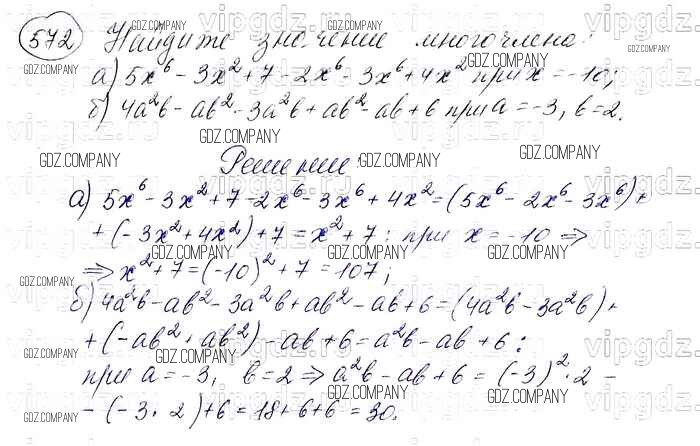 572 Найдите значение многочлена:
а) 5x⁶ - 3x² + 7 - 2x⁶ - 3x⁶ + 4x² при x = -10;
б) 4a²b - ab² - 3a²b + ab² - ab + 6 при a = -3, b = 2.
Решение:
а) 5x⁶ - 3x² + 7 - 2x⁶ - 3x⁶ + 4x² = (5x⁶ - 2x⁶ - 3x⁶) +
+ (-3x² + 4x²) + 7 = x² + 7; при x = -10 ⇒
⇒ x² + 7 = (-10)² + 7 = 107;
б) 4a²b - ab² - 3a²b + ab² - ab + 6 = (4a²b - 3a²b) +
+ (-ab² + ab²) - ab + 6 = a²b - ab + 6:
при a = -3, b = 2 ⇒ a²b - ab + 6 = (-3)² · 2 -
- (-3 · 2) + 6 = 18 + 6 + 6 = 30.